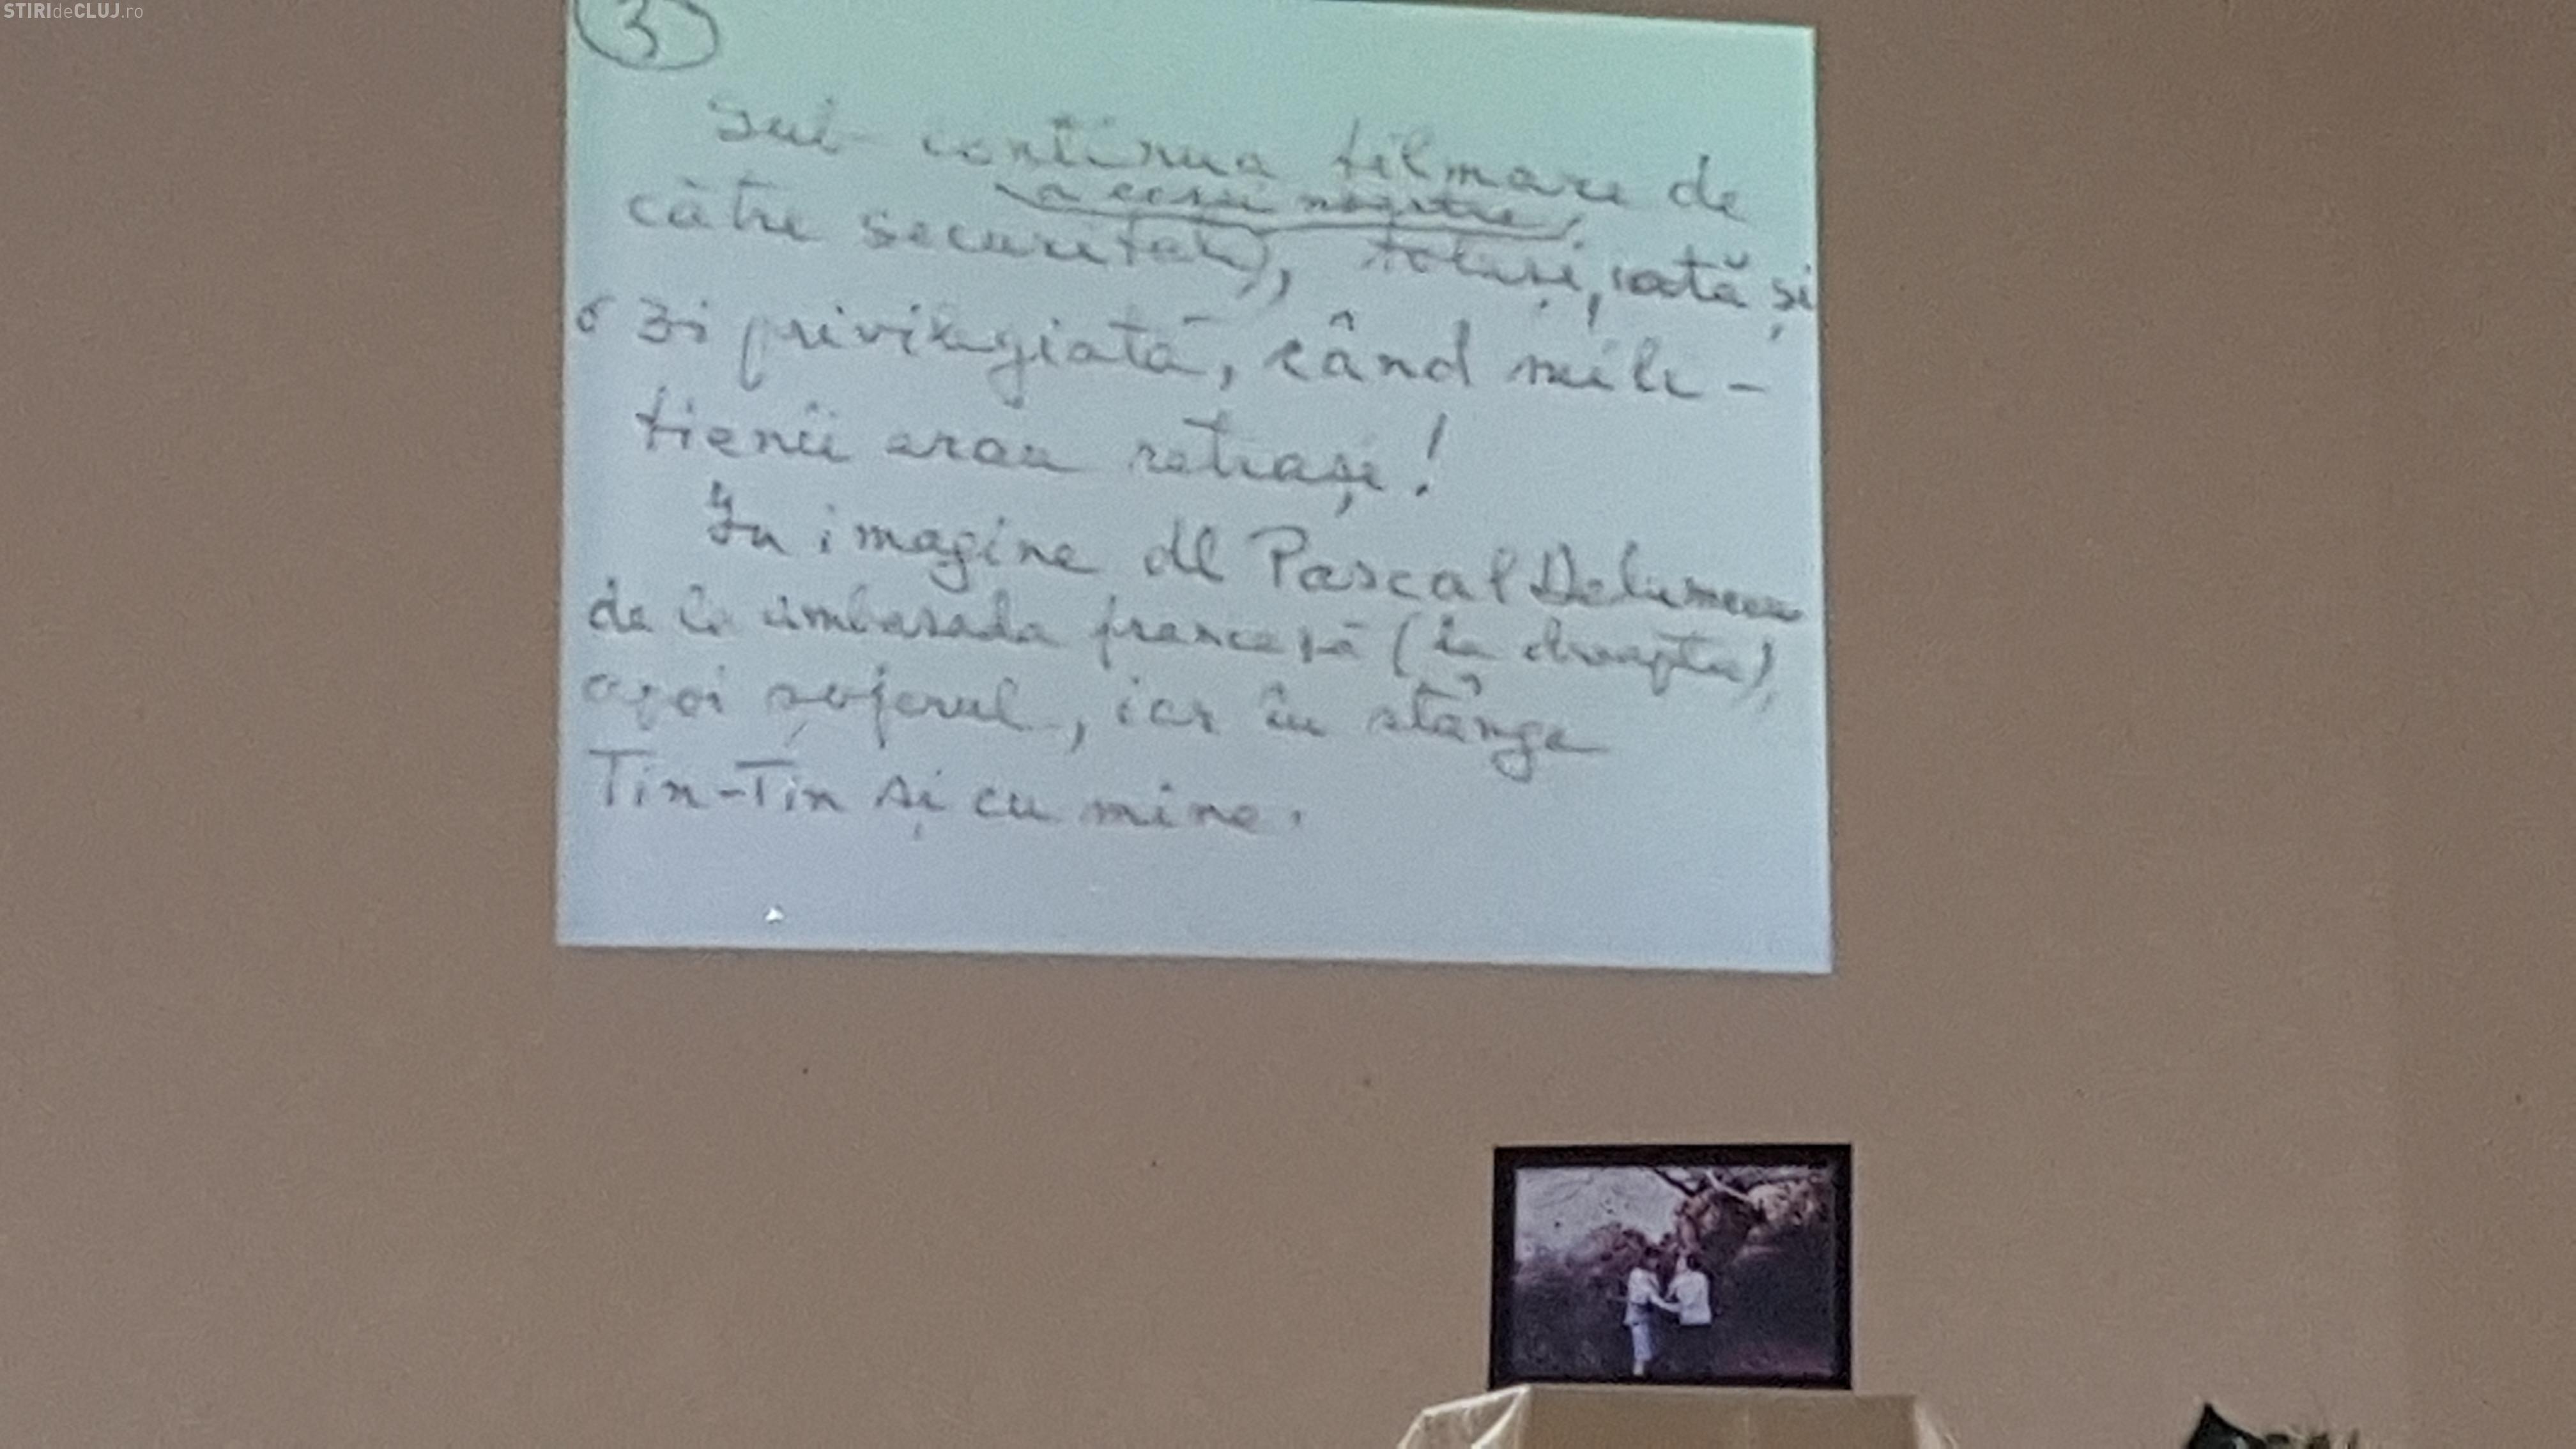 STIRIdeCLUJ.ro
3
Sub continua filmare de
a casei noastre,
către securitate, totuși, iată și
o zi privilegiată, când mili-
tienii erau retrași!
In imagine dl Pascal Delumeau
de la ambasada franceză (în dreapta),
apoi șoferul, iar în stânga
Tin-Tin și cu mine.